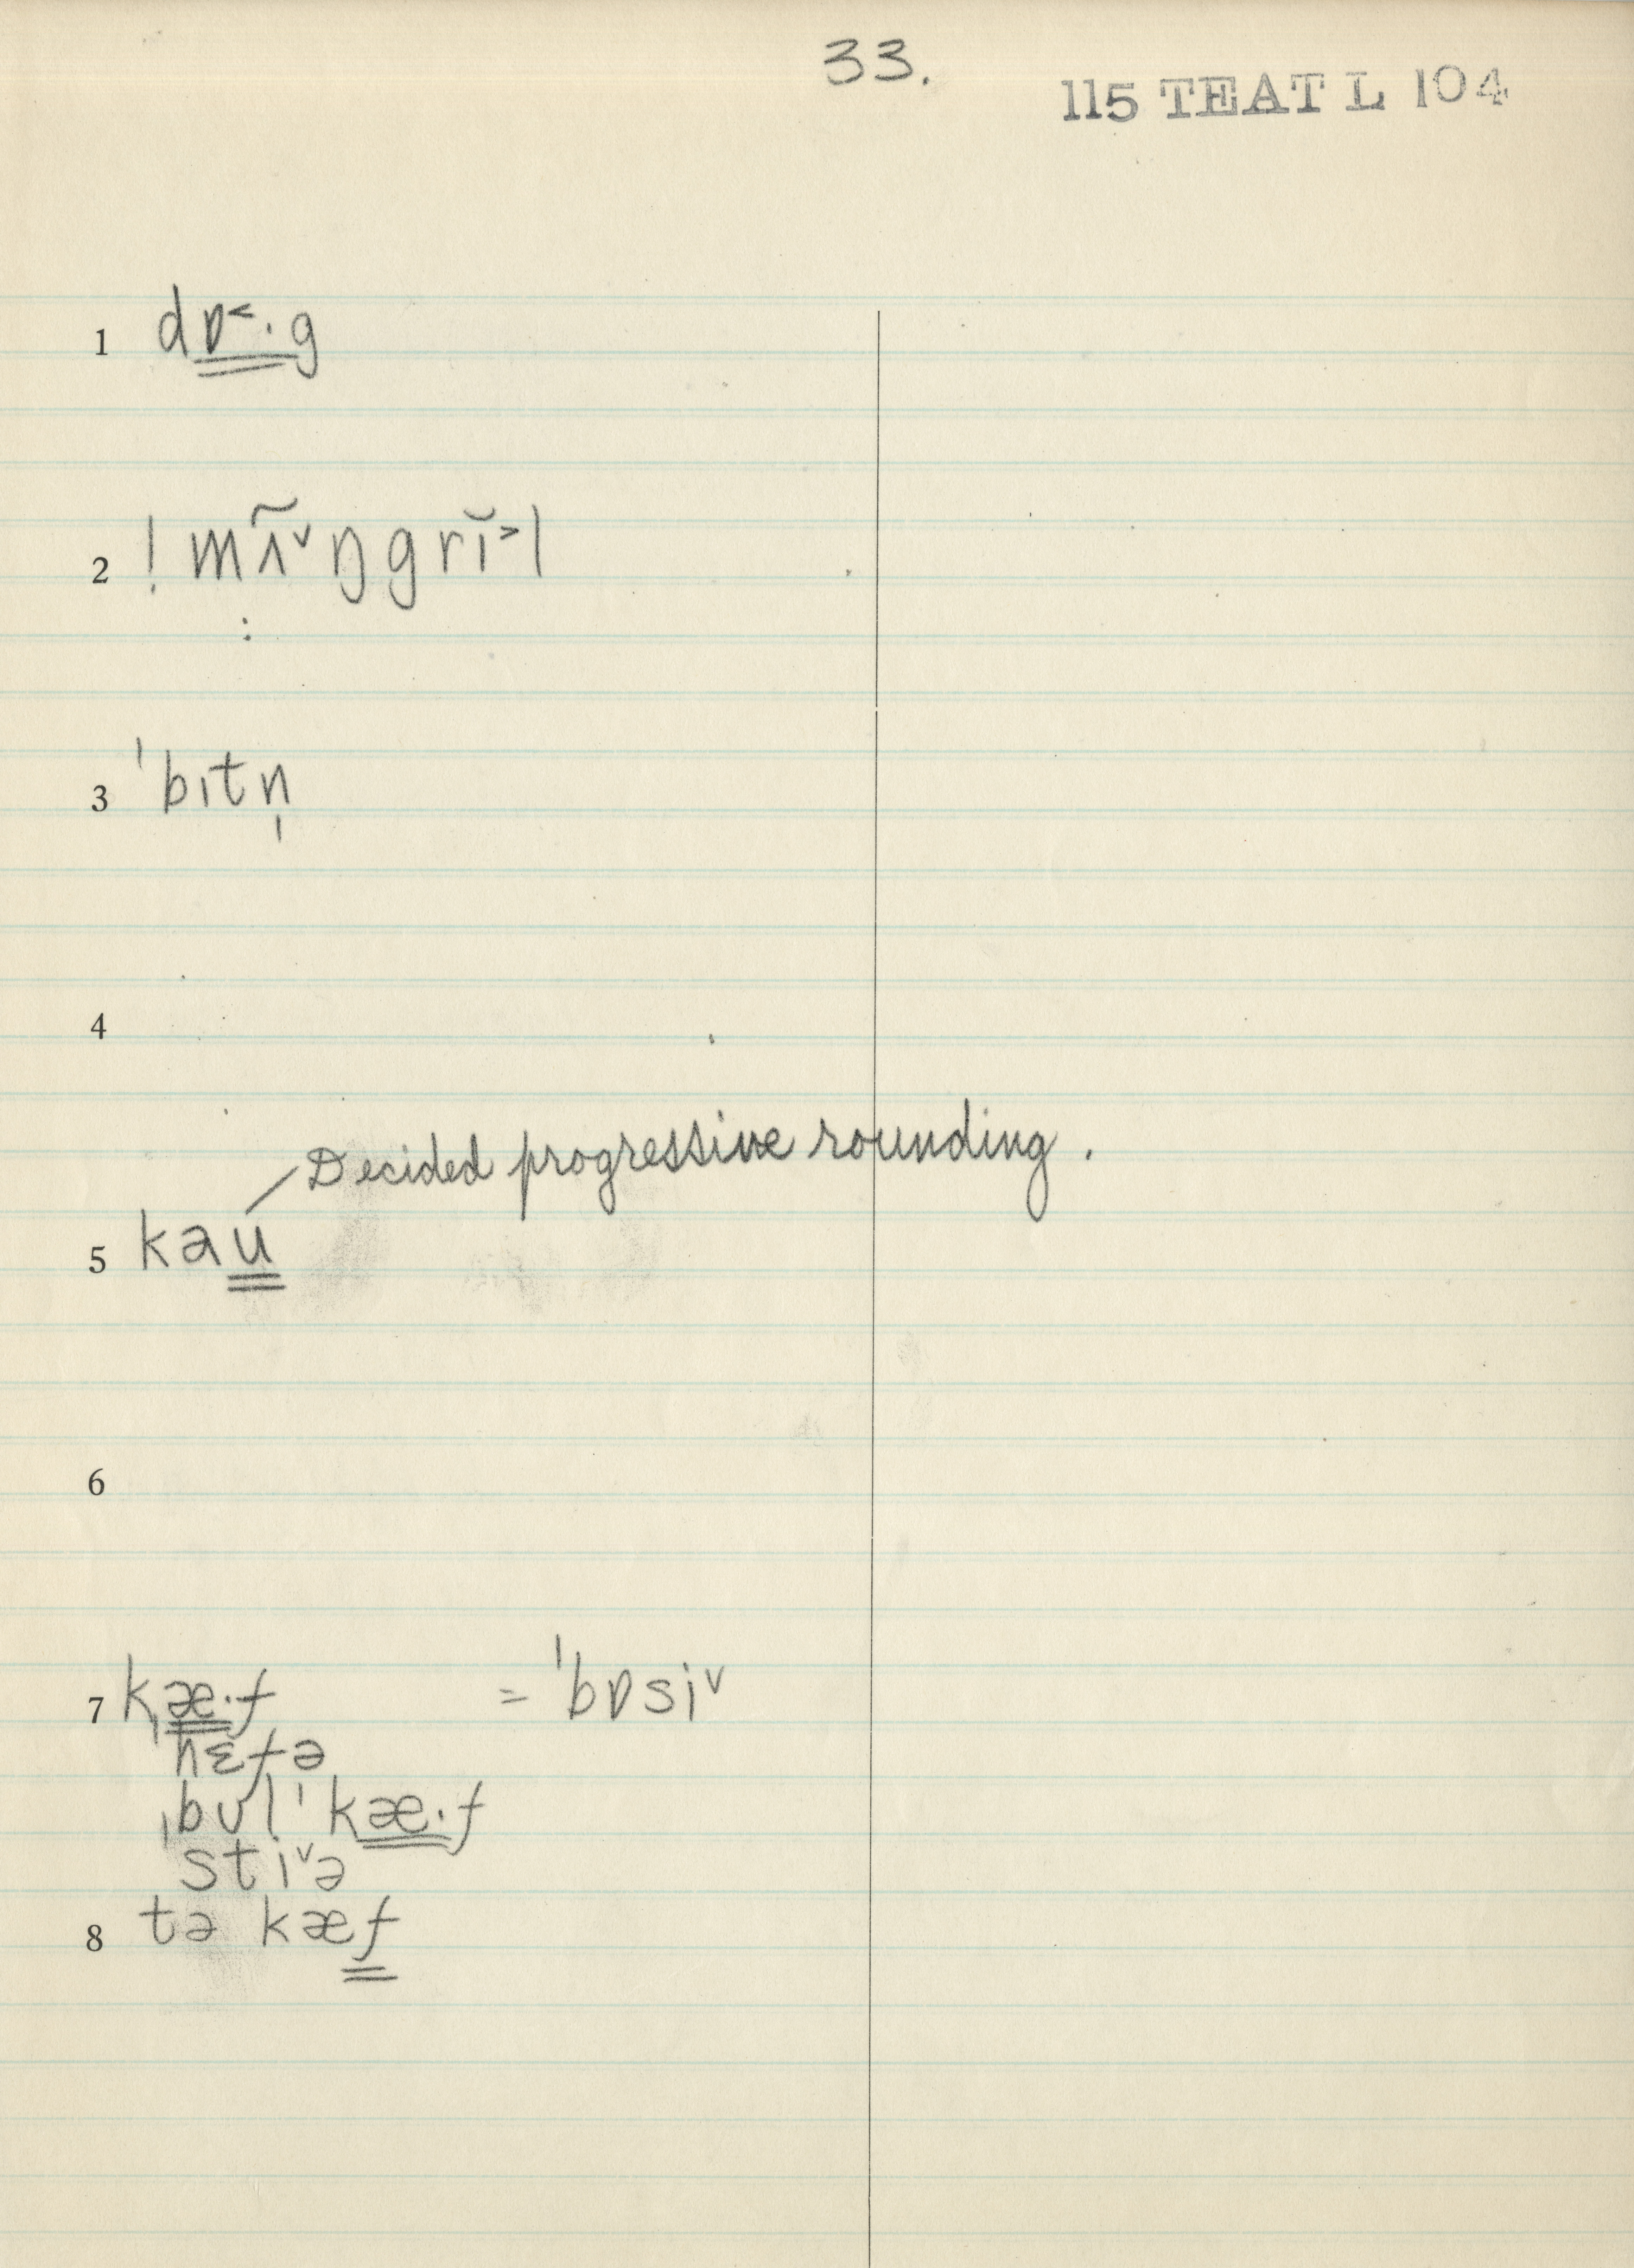 33.
115 TEAT L 104
1 dɒ˂·g
2 ! mʌ̃˅ŋgrĭ˃l
:
3 ˈbɪtn̩
4
Decided progressive rounding.
5 kau
6
7 kæ·f = ˈbɒsi˅
ˈhɛfə
ˌbʊlˈkæ·f
sti˅ə
8 tə kæf